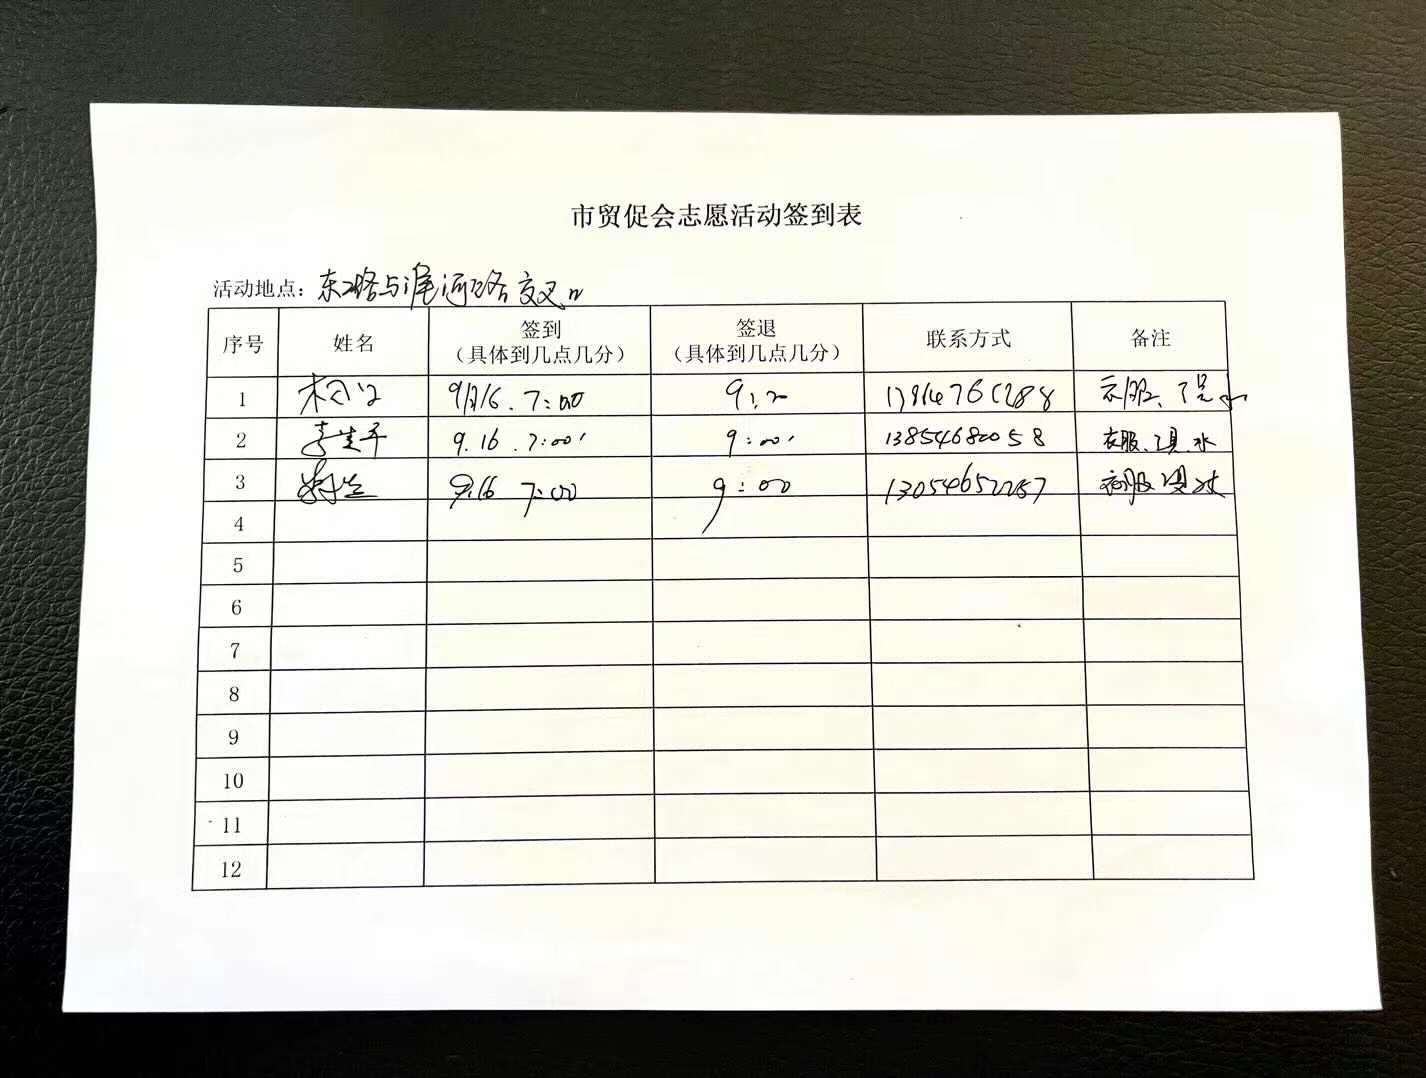 市贸促会志愿活动签到表
活动地点：东二路与淮河路交叉口
序号 姓名 签到 （具体到几点几分） 签退 （具体到几点几分） 联系方式 备注
1 9月16. 7:00 9:20 衣服、工具、水
2 9.16 . 7:00' 9:00' 13854680058 衣服、工具、水
3 9.16 7:00 9:00 13054652257 衣服 工具 水
4
5
6
7
8
9
10
11
12